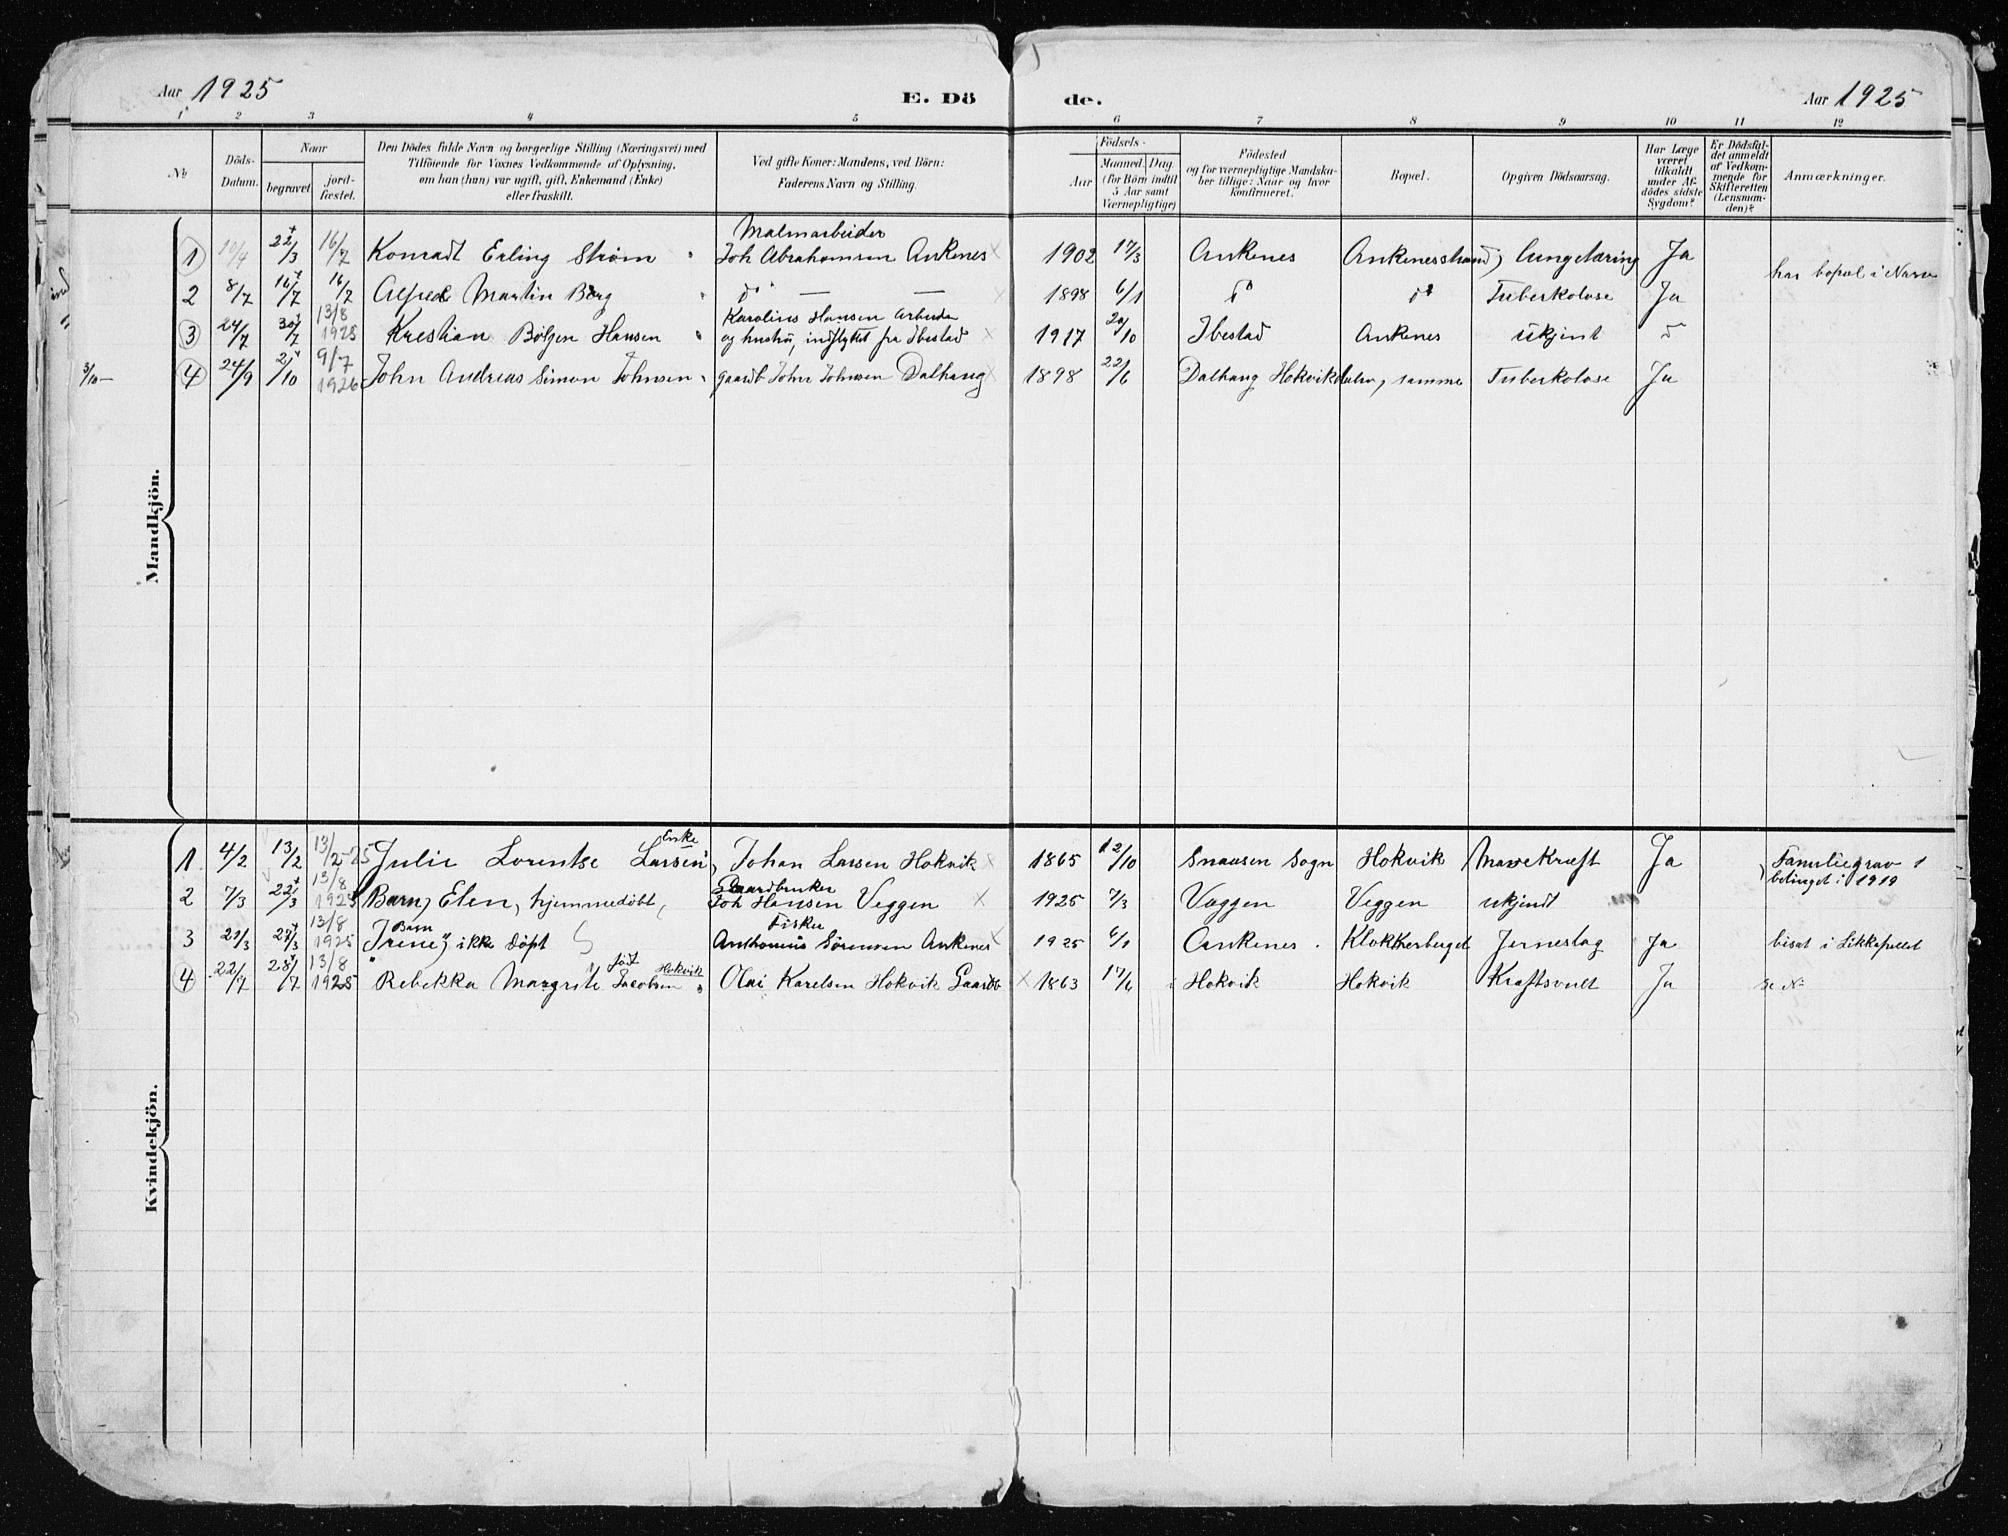 Aar 1925
E. Dö de.
Aar 1925
1 2 3 4 5 6 7 8 9 10 11 12
№
Döds-Datum.
Naar
begravet
jord-fæstet.
Den Dödes fulde Navn og borgerlige Stilling (Næringsvei) med
Tilföiende for Voxnes Vedkommende af Oplysning,
om han (hun) var ugift, gift, Enkemand (Enke)
eller fraskilt.
Ved gifte Koner: Mandens, ved Börn:
Faderens Navn og Stilling.
Födsels-
Aar
Maaned. Dag.
(for Börn indtil
5 Aar samt
Værnepligtige)
Födested
og for værnepligtige Mandska-
ber tillige: Naar og hvor
konfirmeret.
Bopæl.
Opgiven Dödsaarsag.
Har Læge
været
tilkaldt
under Af-
dödes sidste
Sygdom?
Er Dödsfal-
det anmeldt
af Vedkom-
mende for
Skifteretten
(Lensman-
den)?
Anmærkninger.
Mandkjön.
Malmarbeider
1 22/3 16/7 Konradt Erling Strøm Joh Abrahamsen Ankenes 1902 17/3 Ankenes Ankenesstrand, Lungetæring Ja
har bopæl i Narv
2 8/7 16/7 16/7 Alfred Martin Berg do — — 1898 6/1 do do Tuberkolose Ja
13/8 Karolius Hansen Arbeider
3 24/7 30/7 1925 Krestian Bølgen Hansen og hustru, indflyttet fra Ibestad 1917 20/10 Ibestad Ankenes Ukjent do
3/10— 4 24/9 2/10 9/7 1926 John Andreas Simon Johnsen gaardb John Johnsen Dalhaug 1898 22/6 Dalhaug Hokvik samme Tuberkolose Ja
Kvindekjön.
Enke
1. 4/2 13/2 13/2-25 Julie Lorentse Larsen, Johan Larsen Hokvik 1865 12/10 Snaasen Sogn Hokvik Mavekræft Ja Familiegrav
betinget i 1919
13/8 Gaardbruker
2 7/3 22/3 1925 Barn, Elen, hjemmedøbt, Joh Hansen Veggen 1925 7/3 Væggen Veggen ukjendt
13/8 Barn Fisker
3 21/3 29/3 1925 Irene, ikke døpt Anthonius Sørensen Ankenes 1925 6/1 Ankenes. Klokkerberget Jerneslag Ja bisat i Likkapellet
13/8 født Hokvik
4 22/7 28/7 1925 Rebekka Margrete Jacobsen Olai Karelsen Hokvik Gaardb 1863 17/6 Hokvik Hokvik Kraftsvult Ja se №